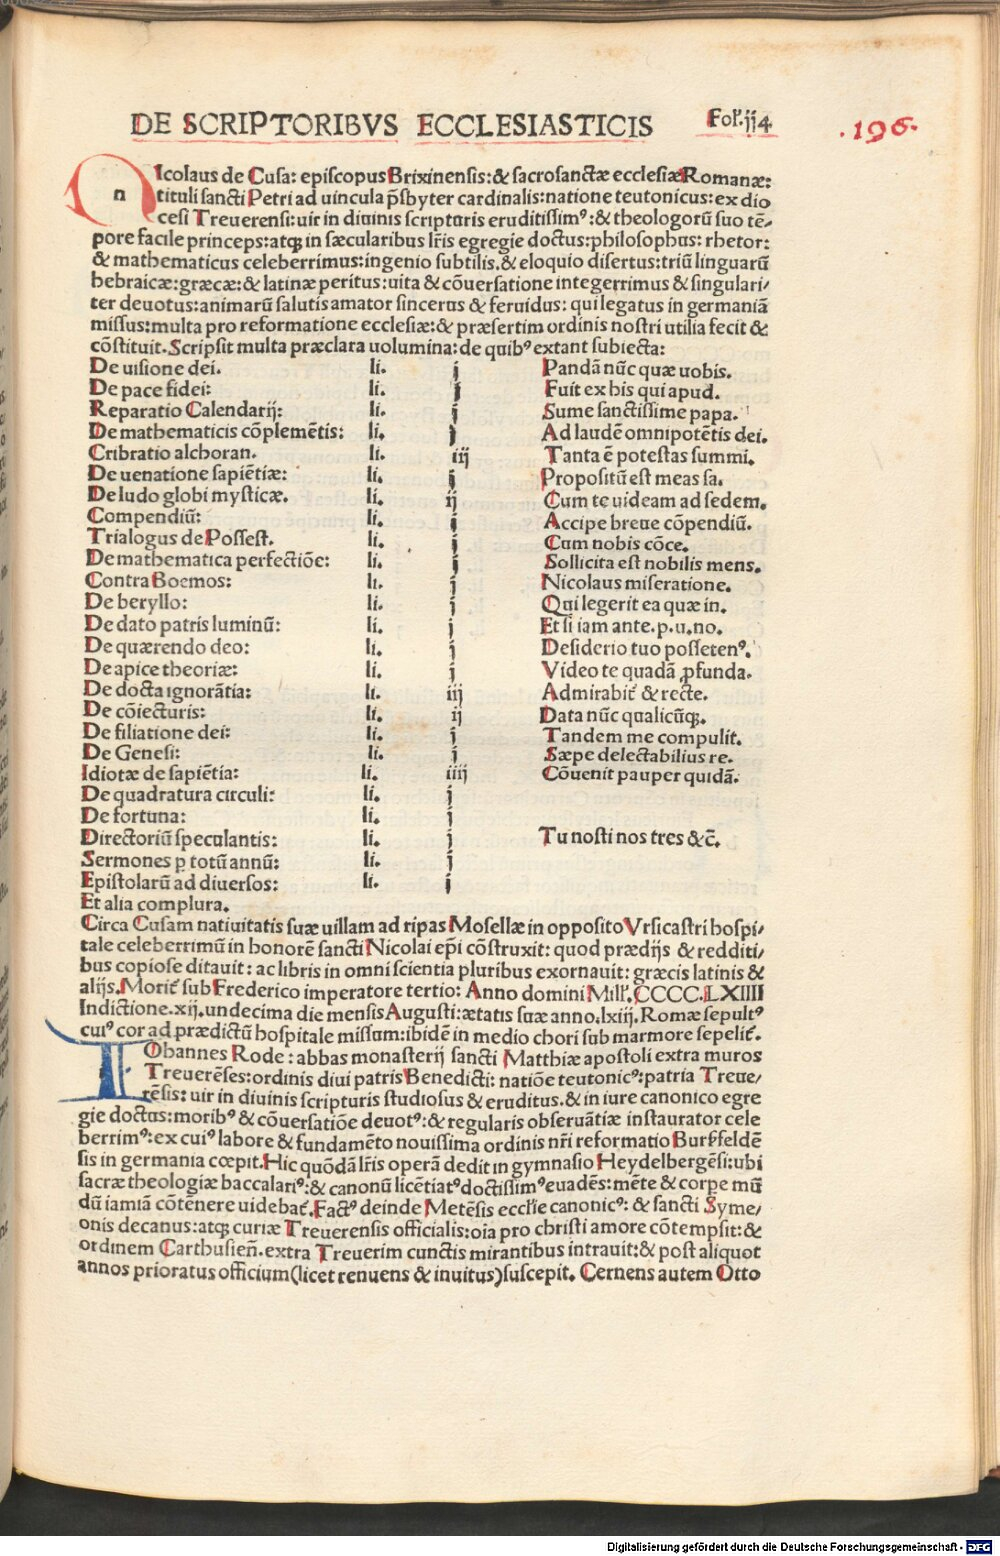 DE SCRIPTORIBVS ECCLESIASTICIS Fol'. jj4 .196.
NIcolaus de Cusa: episcopus Brixinensis: & sacrosanctæ ecclesiæ Romanæ:
tituli sancti Petri ad uincula p̄sbyter cardinalis: natione teutonicus: ex dio
cesi Treuerensi: uir in diuinis scripturis eruditissimꝰ: & theologorū suo tē-
pore facile princeps: atqꝫ in sæcularibus lr̄is egregie doctus: philosophus: rhetor:
& mathematicus celeberrimus: ingenio subtilis. & eloquio disertus: triū linguarū
hebraicæ: græcæ: & latinæ peritus: uita & cōuersatione integerrimus & singulari-
ter deuotus: animarū salutis amator sincerus & feruidus: qui legatus in germaniā
missus: multa pro reformatione ecclesiæ: & præsertim ordinis nostri utilia fecit &
cōstituit. Scripsit multa præclara uolumina: de quibꝰ extant subiecta:
De uisione dei. li. j Pandā nūc quæ uobis.
De pace fidei: li. j Fuit ex his qui apud.
Reparatio Calendarij: li. j Sume sanctissime papa.
De mathematicis cōplemētis: li. j Ad laudē omnipotētis dei.
Cribratio alchoran. li. iij Tanta ē potestas summi.
De uenatione sapiētiæ: li. j Propositū est meas sa.
De ludo globi mysticæ. li. ij Cum te uideam ad sedem.
Compendiū: li. j Accipe breue cōpendiū.
Trialogus de Possest. li. j Cum nobis cōce.
De mathematica perfectiōe: li. j Sollicita est nobilis mens.
Contra Boemos: li. j Nicolaus miseratione.
De beryllo: li. j Qui legerit ea quæ in.
De dato patris luminū: li. j Et si iam ante. p. u. no.
De quærendo deo: li. j Desiderio tuo possetenꝰ.
De apice theoriæ: li. j Video te quadā ꝓfunda.
De docta ignorātia: li. iij Admirabit̄ & recte.
De cōiecturis: li. ij Data nūc qualicūqꝫ.
De filiatione dei: li. j Tandem me compulit.
De Genesi: li. j Sæpe delectabilius re.
Idiotæ de sapiētia: li. iiij Cōuenit pauper quidā.
De quadratura circuli: li. j
De fortuna: li. j
Directoriū speculantis: li. j Tu nosti nos tres &c̄.
Sermones ꝑ totū annū: li. j
Epistolarū ad diuersos: li. j
Et alia complura.
Circa Cusam natiuitatis suæ uillam ad ripas Mosellæ in opposito Vrsicastri hospi-
tale celeberrimū in honorē sancti Nicolai ep̄i cōstruxit: quod prædijs & redditi-
bus copiose ditauit: ac libris in omni scientia pluribus exornauit: græcis latinis &
alijs. Morit̄ sub Frederico imperatore tertio: Anno domini Mill'. CCCC. LXIIII
Indictione. xij. undecima die mensis Augusti: ætatis suæ anno. lxiij. Romæ sepultꝰ
cuiꝰ cor ad prædictū hospitale missum: ibidē in medio chori sub marmore sepelit̄.
IOhannes Rode: abbas monasterij sancti Matthiæ apostoli extra muros
Treuerēses: ordinis diui patris Benedicti: natiōe teutonicꝰ: patria Treue-
rēsis: uir in diuinis scripturis studiosus & eruditus. & in iure canonico egre
gie doctus: moribꝰ & cōuersatiōe deuotꝰ: & regularis obseruātiæ instaurator cele
berrimꝰ: ex cuiꝰ labore & fundamēto nouissima ordinis nr̄i reformatio Bursfeldē
sis in germania cœpit. Hic quōdā lr̄is operā dedit in gymnasio Heydelbergēsi: ubi
sacræ theologiæ baccalariꝰ: & canonū licētiatꝰ doctissimꝰ euadēs: mēte & corpe mū
dū iamiā cōtēnere uidebat̄. Factꝰ deinde Metēsis eccl̄ie canonicꝰ: & sancti Syme-
onis decanus: atqꝫ curiæ Treuerensis officialis: oīa pro christi amore cōtempsit: &
ordinem Carthusien̄. extra Treuerim cunctis mirantibus intrauit: & post aliquot
annos prioratus officium (licet renuens & inuitus) suscepit. Cernens autem Otto
Digitalisierung gefördert durch die Deutsche Forschungsgemeinschaft - DFG